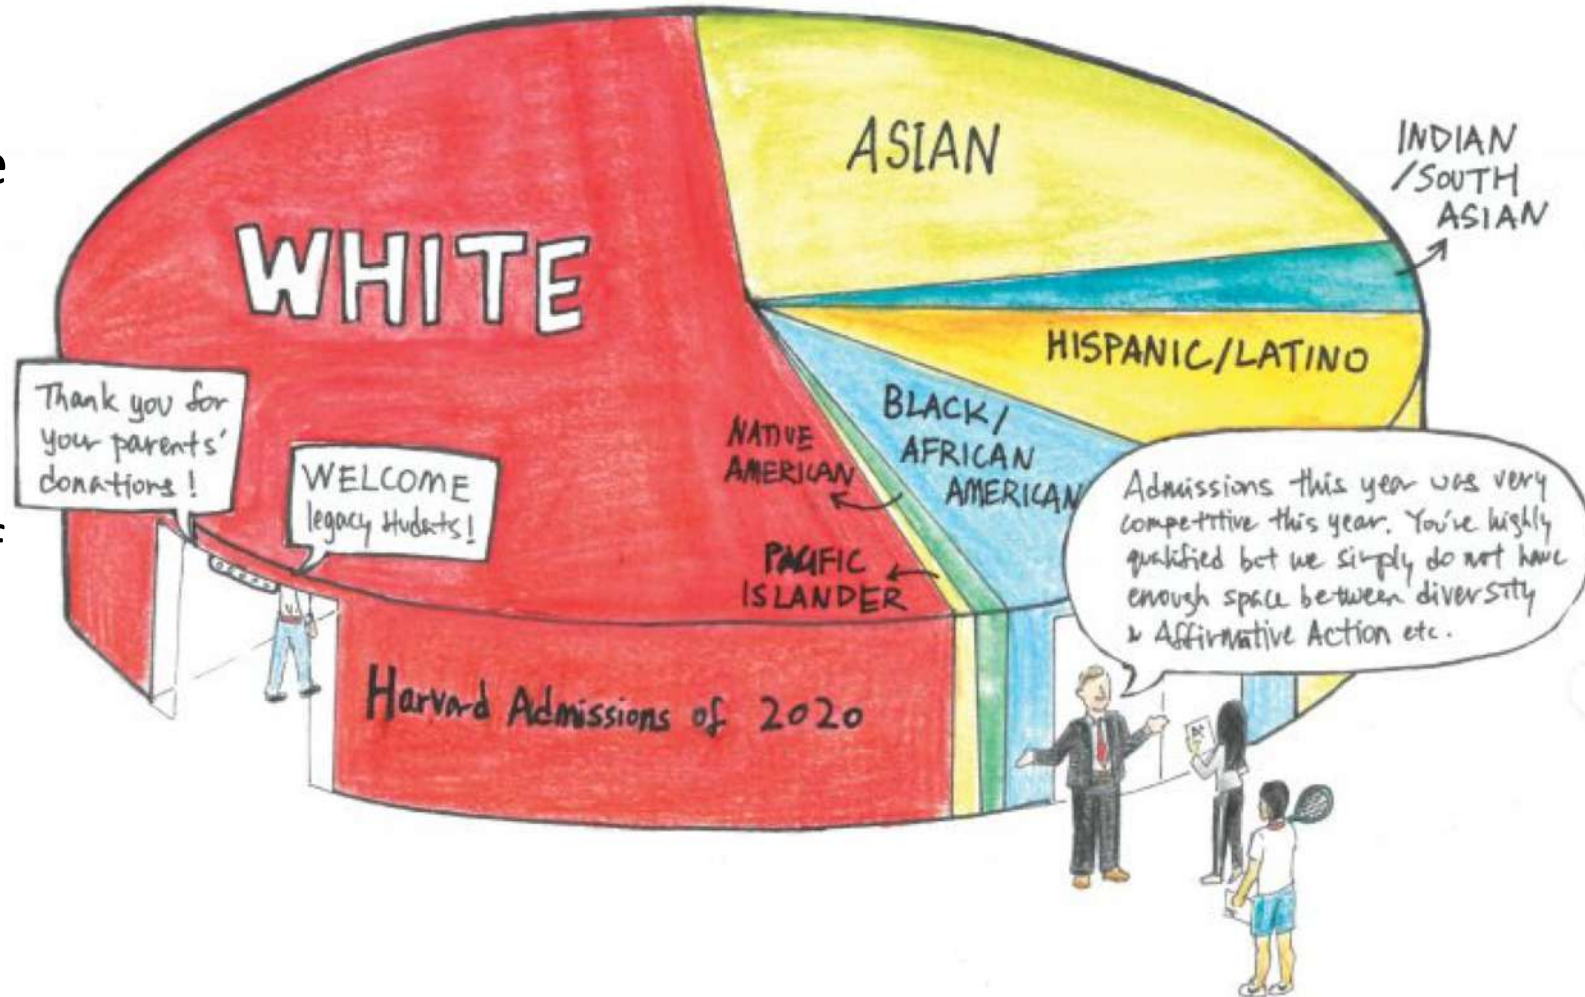 e
f
WHITE
ASIAN
INDIAN
/SOUTH
ASIAN
HISPANIC/LATINO
BLACK/
AFRICAN
AMERICAN
NATIVE
AMERICAN
PACIFIC
ISLANDER
Thank you for
your parents'
donations!
WELCOME
legacy students!
Admissions this year was very
competitive this year. You've highly
qualified but we simply do not have
enough space between diversity
& Affirmative Action etc.
Harvard Admissions of 2020
A+